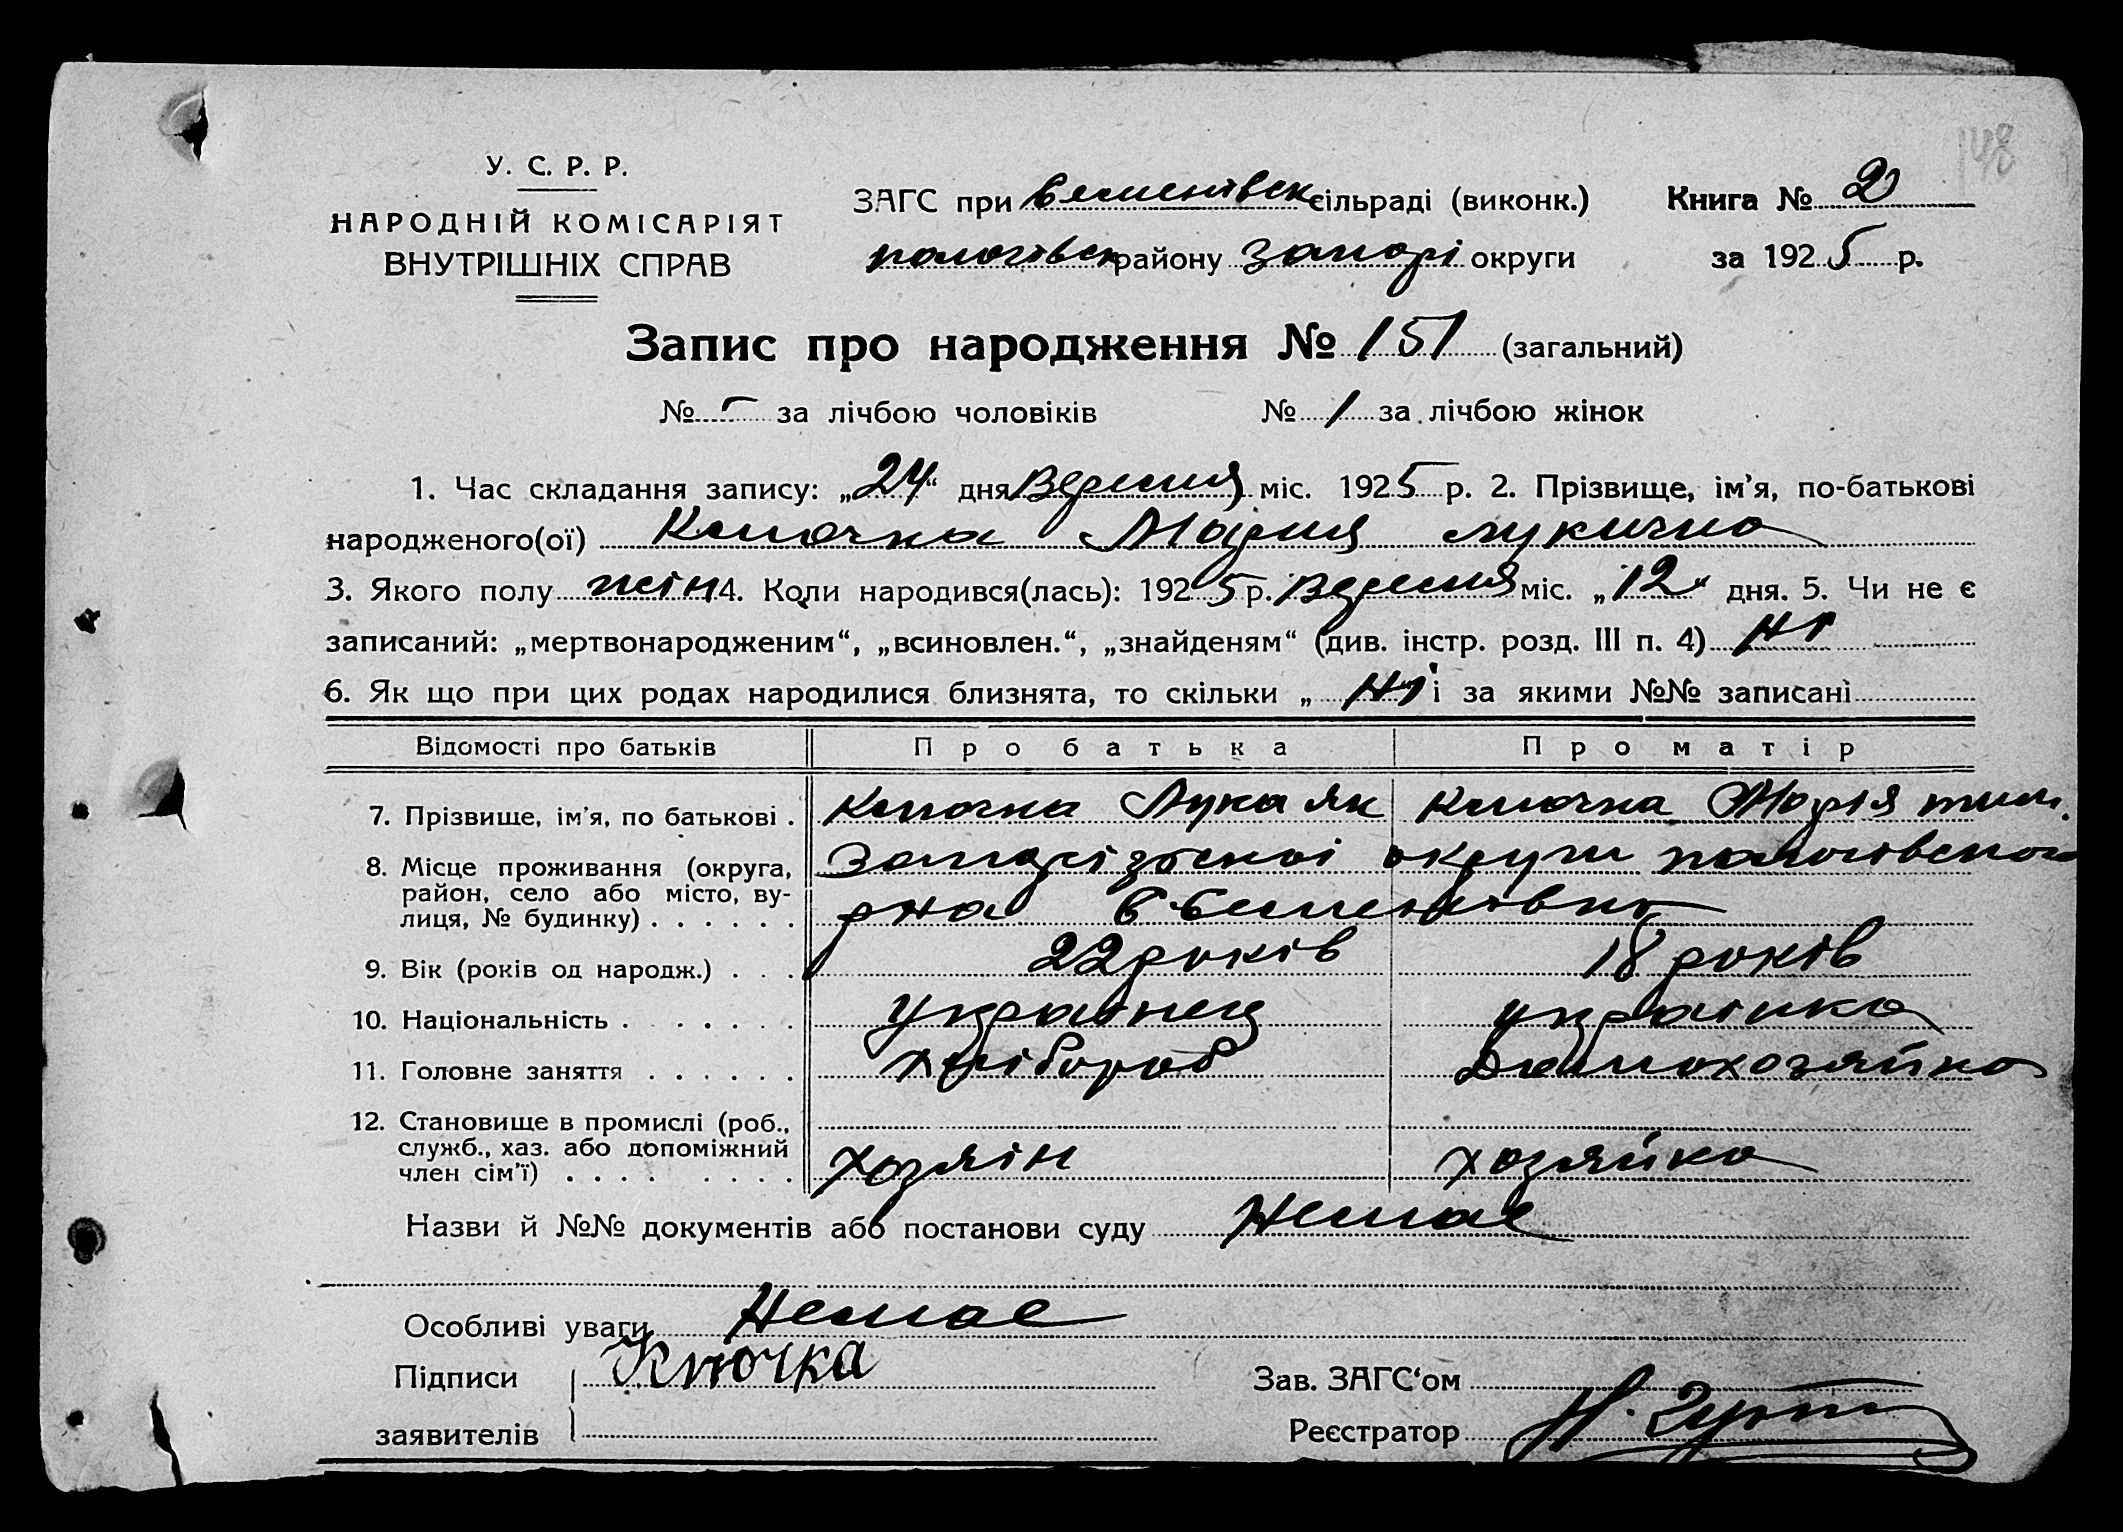 148
У. С. Р. Р.
НАРОДНІЙ КОМІСАРІЯТ
ВНУТРІШНІХ СПРАВ
ЗАГС при сільраді (виконк.)
пологівск району Запорі округи
Книга № 2
за 1925 р.
Запис про народження № 151 (загальний)
№ за лічбою чоловіків № 1 за лічбою жінок
1. Час складання запису: „24“ дня Вересня міс. 1925 р. 2. Прізвище, ім'я, по-батькові
народженого(ої) Ключка Мария лукична
3. Якого полу жін 4. Коли народився(лась): 1925 р. Вересня міс. „12“ дня. 5. Чи не є
записаний: „мертвонародженим“, „всиновлен.“, „знайденям“ (див. інстр. розд. III п. 4) ні
6. Як що при цих родах народилися близнята, то скільки „ ні “ і за якими №№ записані
Відомості про батьків Про батька Про матір
7. Прізвище, ім'я, по батькові . Ключка Лука як Ключка Марія тим.
8. Місце проживання (округа, район, село або місто, вулиця, № будинку) . . . . . . Запорізскої округи пологівского
рна
9. Вік (років од народж.) . . . 22 років 18 років
10. Національність . . . . . . . украінец украінка
11. Головне заняття . . . . . . хлібороб Домохозяйка
12. Становище в промислі (роб., служб., хаз. або допоміжний член сім'ї) . . . . . . . . хозяін хозяйка
Назви й №№ документів або постанови суду Немае
Особливі уваги Немае
Підписи заявителів Ключка
Зав. ЗАГС‘ом
Реєстратор